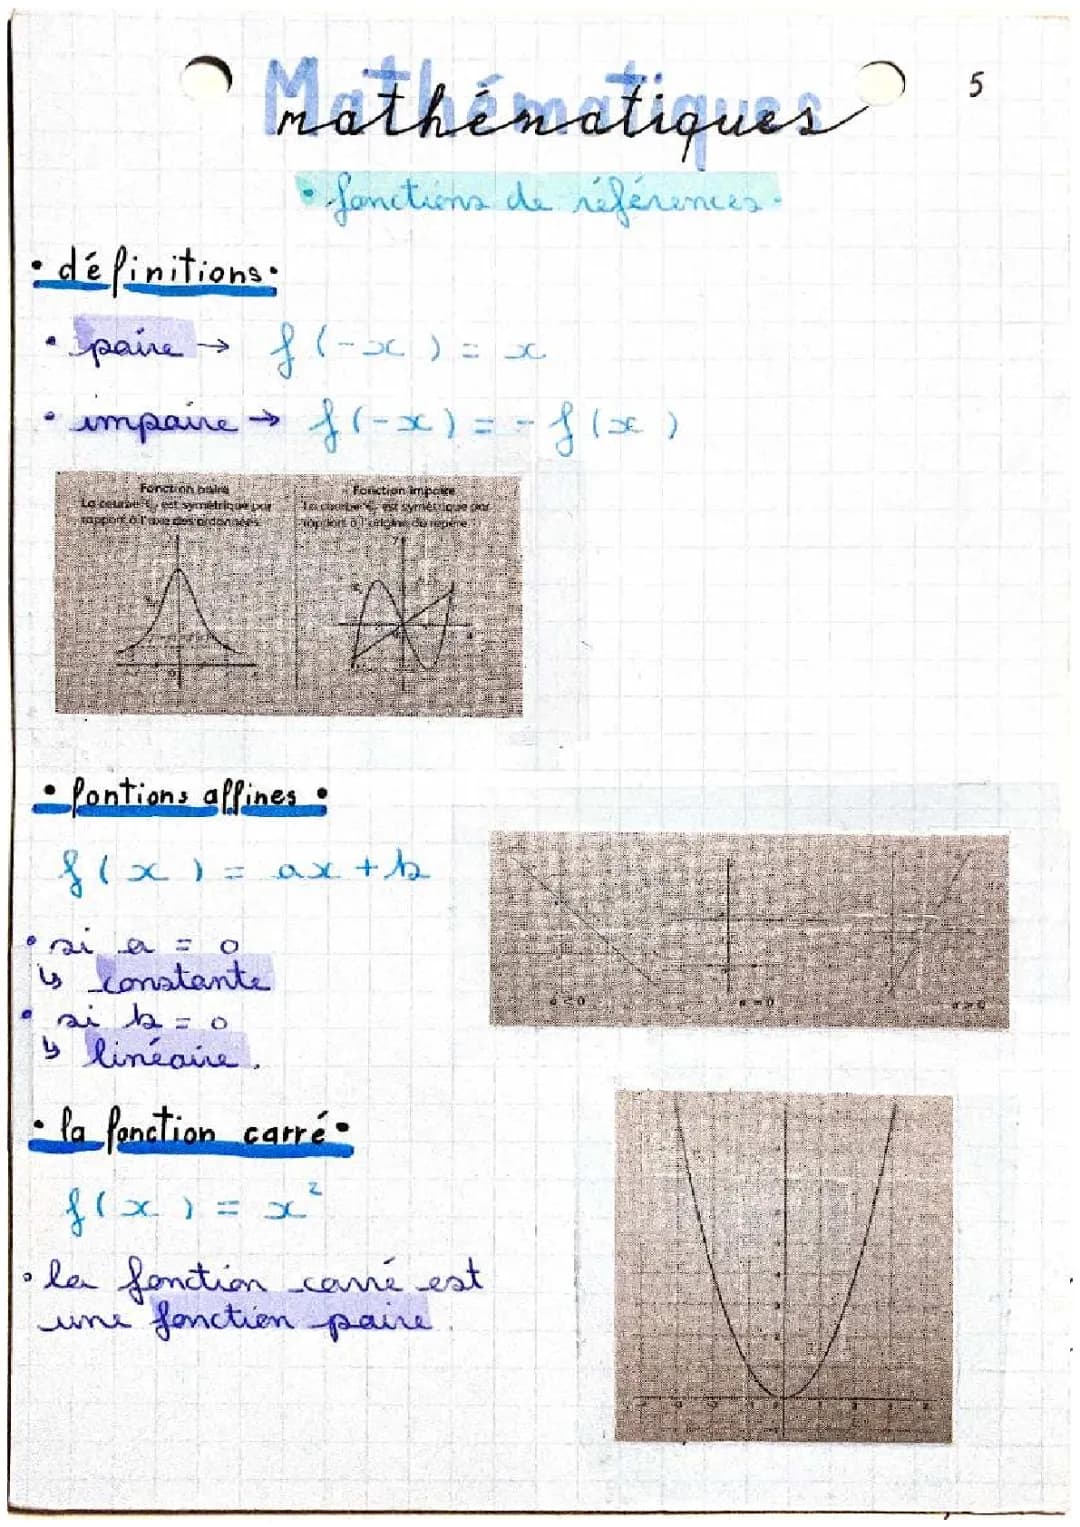 Mathématiques
mathématiques
5
• fonctions de références •
• définitions •
• paire → f(-x) = x
• impaire → f(-x) = -f(x)
Fonction paire
La courbe Cf est symétrique par
rapport à l'axe des ordonnées
Fonction impaire
La courbe Cf est symétrique par
rapport à l'origine du repère :
• fontions affines •
f(x) = ax + b
• si a = 0
↳ constante
• si b = 0
↳ linéaire.
a<0
a=0
a>0
• la fonction carré •
f(x) = x²
• la fonction carré est
une fonction paire.